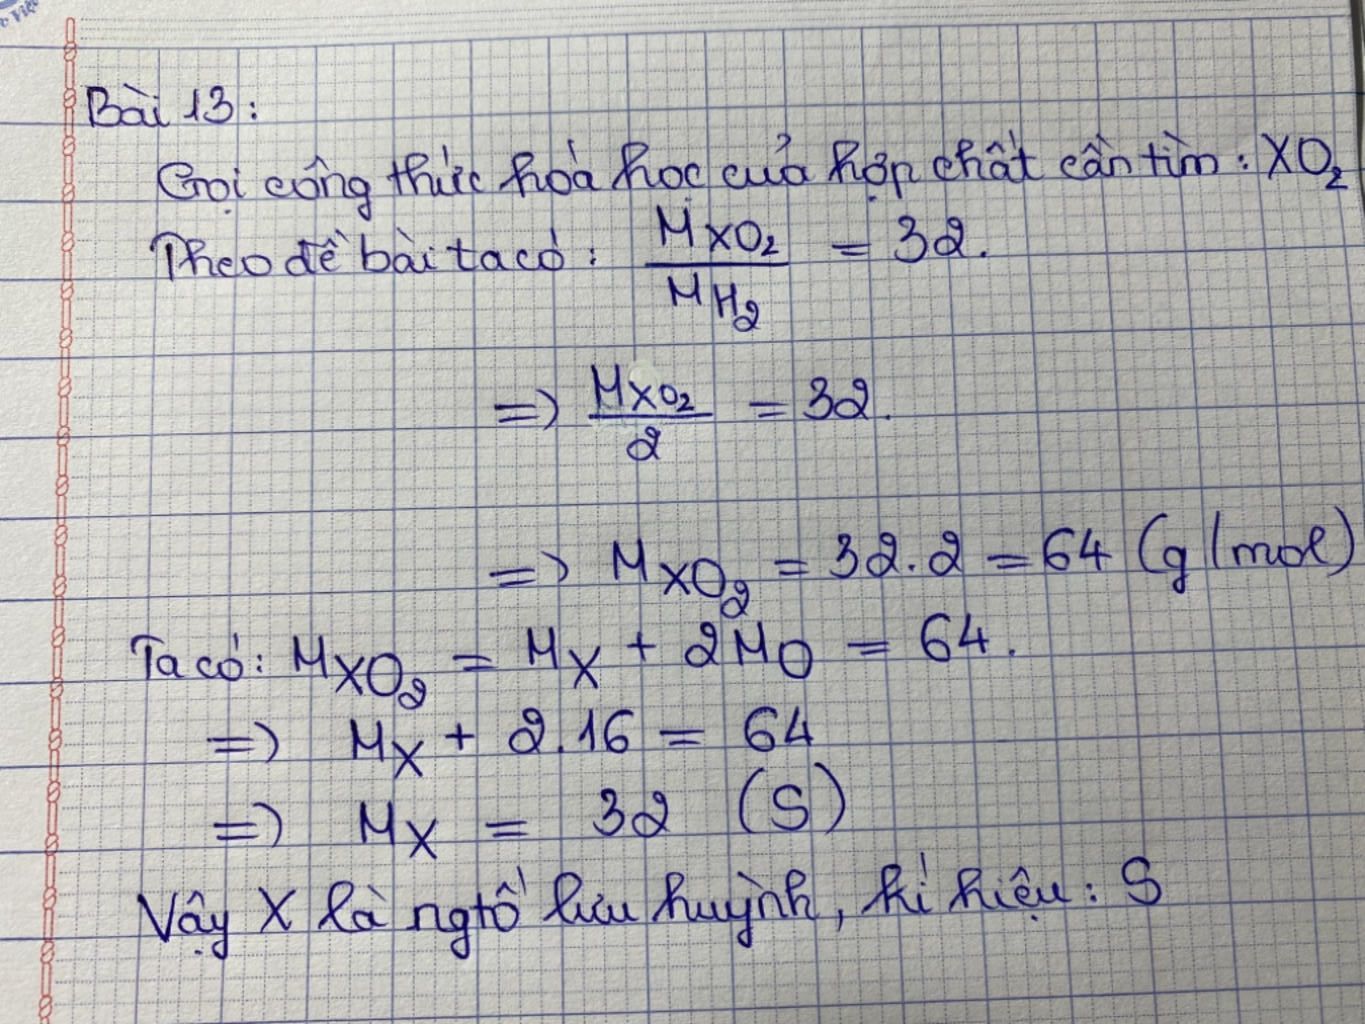 Bài 13:
Gọi công thức hóa học của hợp chất cần tìm: XO₂
Theo đề bài ta có: M_XO₂ / M_H₂ = 32.
=> M_XO₂ / 2 = 32.
=> M_XO₂ = 32.2 = 64 (g/mol)
Ta có: M_XO₂ = M_X + 2M_O = 64.
=> M_X + 2.16 = 64
=> M_X = 32 (S)
Vậy X là ngtố lưu huỳnh, kí hiệu: S